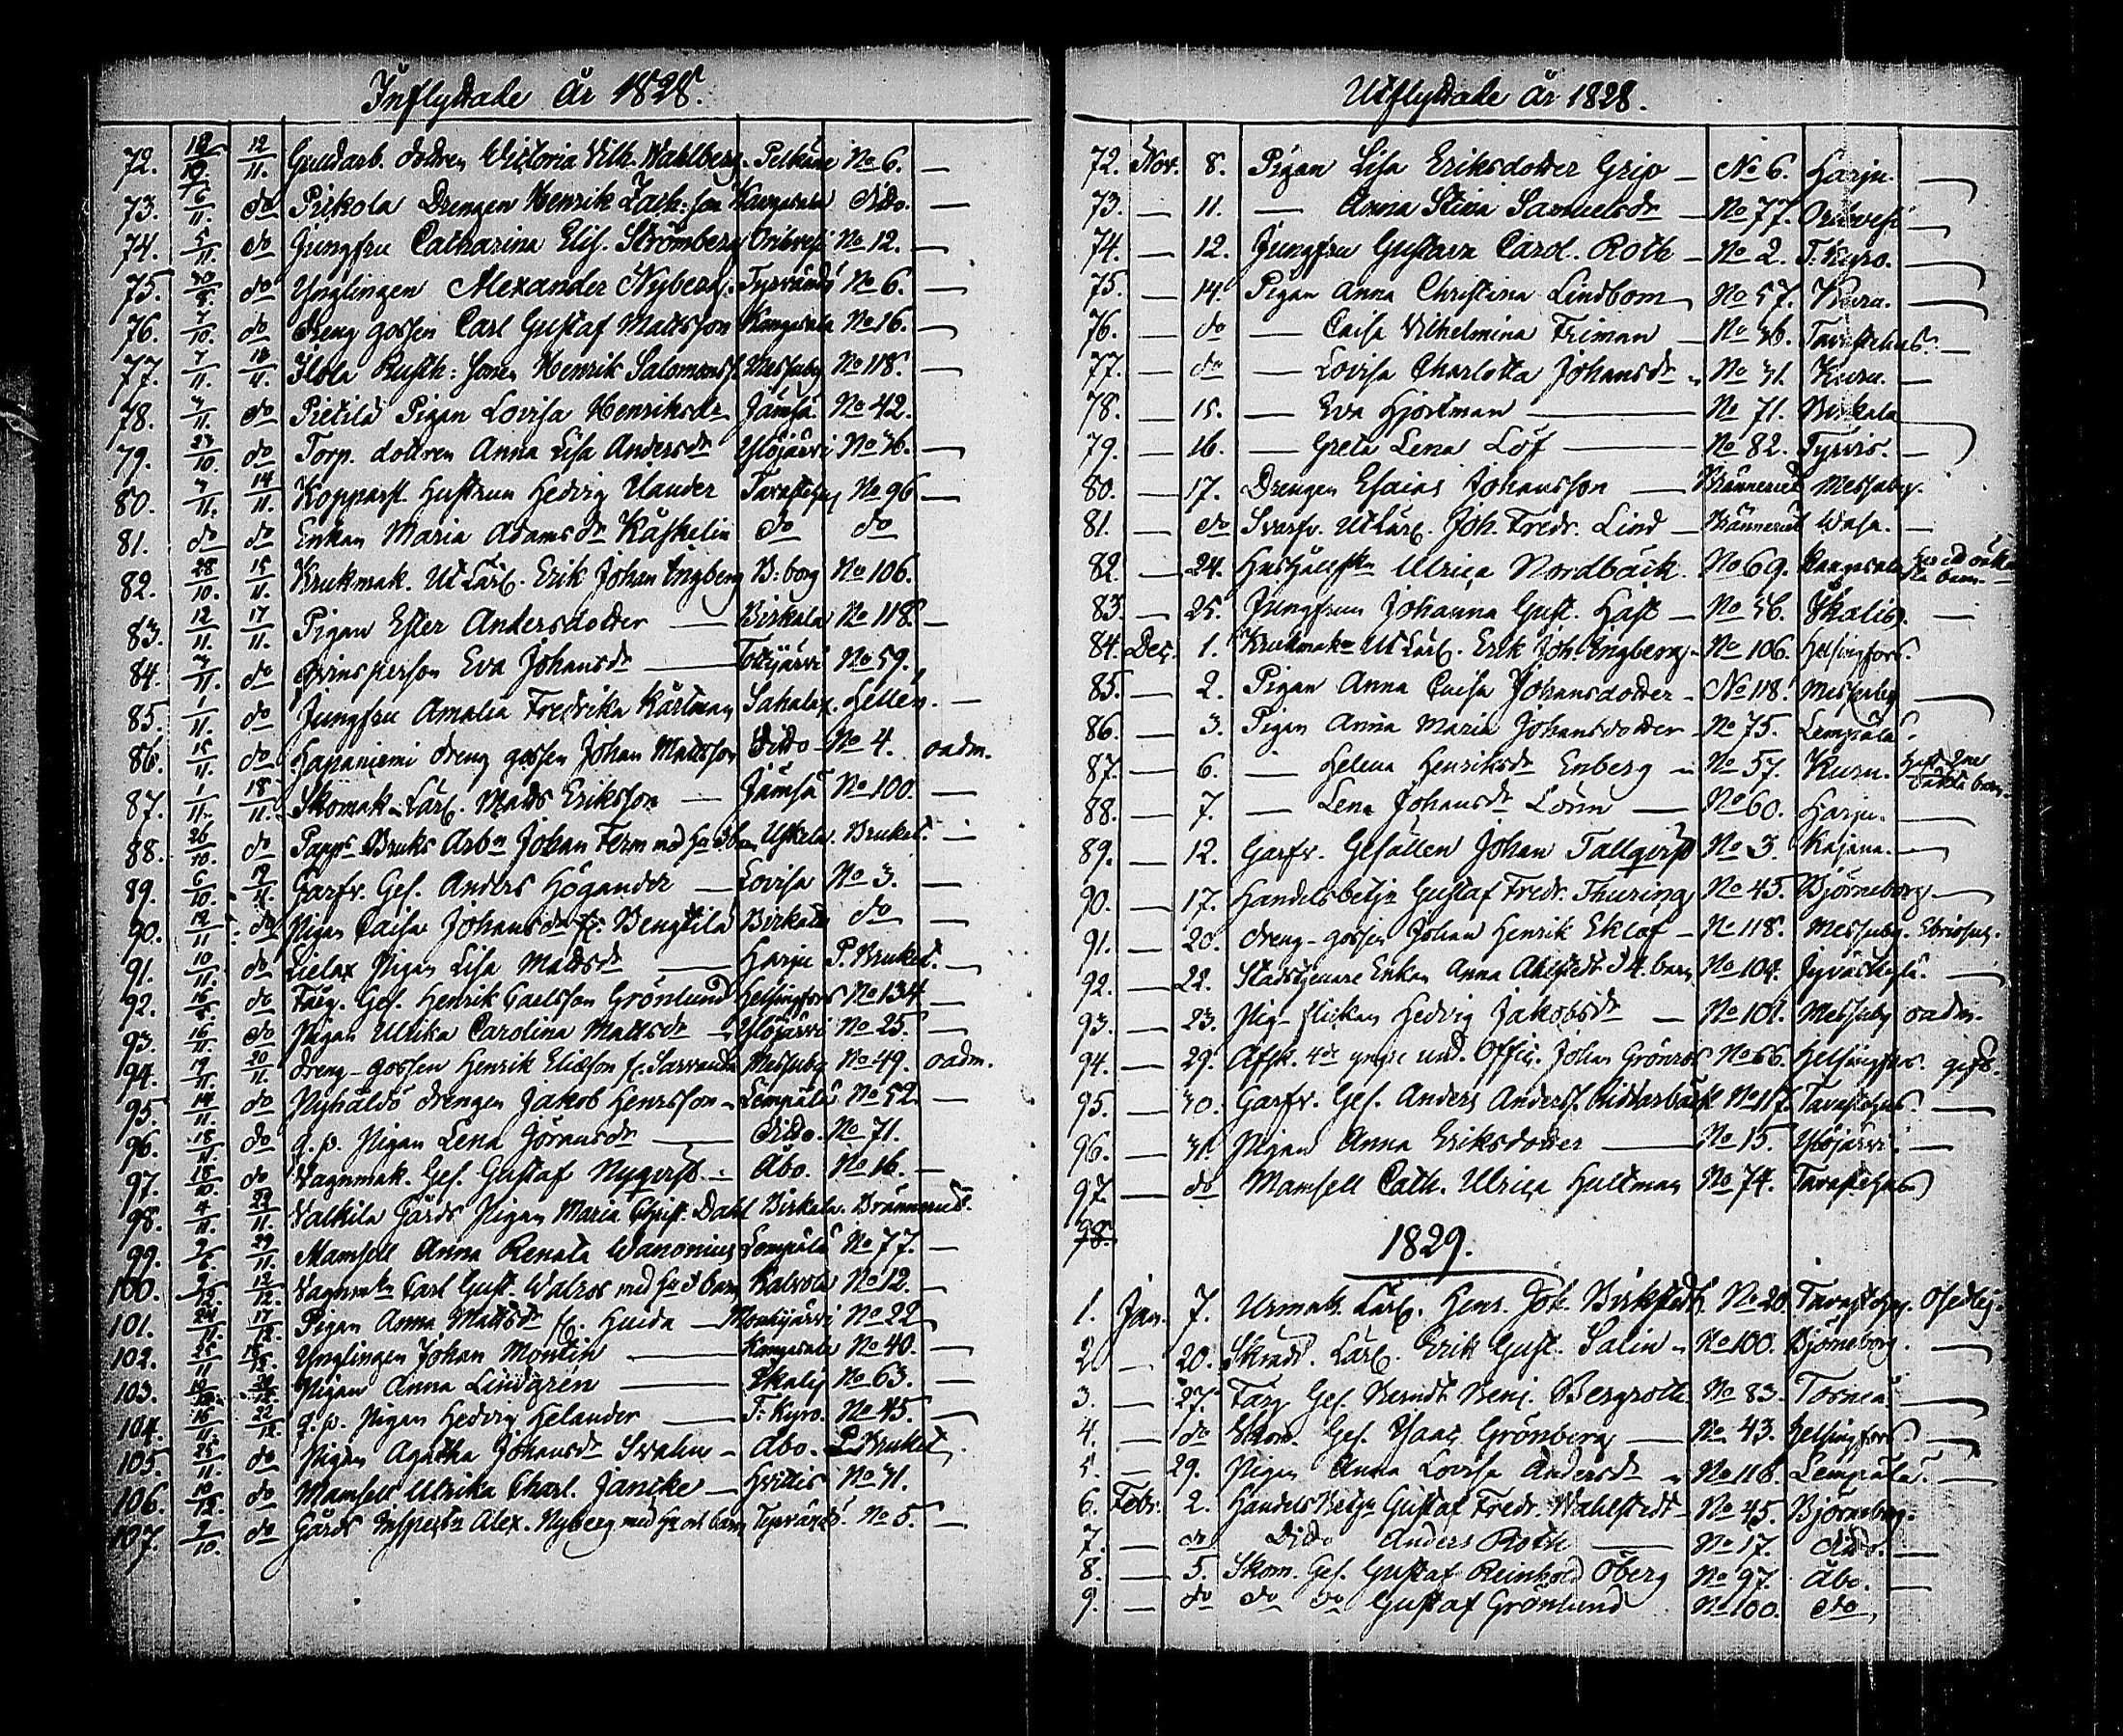 Inflyttade år 1828.
72. 12/11. Gulldarb. dottren Victoria Vilh. Wahlberg Pelkäne No 6. —
73. 6/11. do Pirkola Drengen Henrik Zach:son Kangasala dito. —
74. 5/11. do Jungfru Catharina Elis. Strömberg Orihvesi No 12. —
75. 30/8. do Ynglingen Alexander Nyberg. Tyrvändö No 6. —
76. 7/10. do Dreng gossen Carl Gustaf Mattsson Kangasala No 16. —
77. 7/11. Ilola Rusth: Sonen Henrik Salomonss. Messuby No 118. —
78. 3/11. do Pietilä Pigan Lovisa Henriksdr Jämsä No 42.
79. 23/10. do Torp. dottren Anna Lisa Andersdr Ylöjärvi No 36. —
80. 3/11. 14/11. Kopparsl. Hustrun Hedvig Ulander Tavastehus No 96 —
81. do do Enkan Maria Adamsdr Käskelin do do
82. 28/10. 15/11. Krukmak. Ut Lärl. Erik Johan Engberg B:borg No 106.
83. 12/11. 17/11. Pigan Ester Andersdotter — Birkala No 118. —
84. 3/11. do Qvinsperson Eva Johansdr — Tottijärvi No 59.
85. 1/11. do Jungfru Amalia Fredrika Karlman Sahalax. Hellen. —
86. 15/11. do Hapaniemi dreng gossen Johan Mattsson Ditto No 4. oadm.
87. 1/11. 18/11. Skomak. Lärl. Matts Eriksson — Jämsä No 100. —
88. 26/10. do Papp. Bruks Arbn Johan Ferm md hu o barn Uskela. Bruket. —
89. 6/10. Garfv. Ges. Anders Högander — Lovisa No 3. —
90. 12/11 do Pigan Caisa Johansdr fr. Bengtilä Birkala do —
91. 10/11. do Lielax Pigan Lisa Mattsdr — Harju P. Bruket. —
92. do Färg. Ges. Henrik Carlsson Grönlund Helsingfors No 134. —
93. 16/11. do Pigan Ulrika Carolina Mattsdr — Ylöjärvi No 25. —
94. 19/11. 20/11. Dreng-gossen Henrik Eliasson fr. Messuby No 49. oadm.
95. 14/11. do drengen Jakob Henrsson — Lempälä No 52. —
96. 18/11. do q.p. Pigan Lena Göransdr — Ditto. No 71.
97. 18/10. do Vagnmak. Ges. Gustaf Nyqvist. — Åbo. No 16. —
98. 4/11. 22/11. Valkila Gårds Pigan Maria Christ. Dahl Birkala. Bränneriet.
99. 29/11. Mamsell Anna Renata Wanonius Lempälä No 77. —
100. 12/12. Vagnmkn Carl Gust. Walros med hu o barn Kalvola No 12. —
101. 24/11. 17/12. Pigan Anna Mattsdr fr. Huida — Mouhijärvi No 22
102. 25/11 Ynglingen Johan Montin — Kangasala No 40. —
103. Pigan Anna Lindgren — Ikalis No 63. —
104. 16/11. 22/12. q.p. Pigan Hedvig Helander — T. Kyro. No 45. —
105. 25/11. do Pigan Agatha Johansdr Svahn — Åbo. P. Bruket.
106. 10/12. do Mamsell Ulrika Charl. Jancke — Hvittis No 31.
107. 9/10. do Gårds Inspectn Alex. Nyberg med hu och barn Tyrvändö. No 5. —
Utflyttade år 1828.
72. Nov. 8. Pigan Lisa Eriksdotter Grip — No 6. Harju. —
73. — 11. — Anna Stina Samuelsdr — No 77. Orihvesi —
74. — 12. Jungfru Gustava Carol. Roth — No 2. T. Kyro. —
75. — 14. Pigan Anna Christina Lindbom No 57. Kuru. —
76. — do — Caisa Vilhelmina Friman — No 36. Tavastehus. —
77. — do — Lovisa Charlotta Johansdr — No 31. Kuru. —
78. — 15. — Eva Hjortman — No 71. Birkala
79. — 16. — Greta Lena Löf — No 82. Tyrvis. —
80. — 17. Drengen Esaias Johansson — Bränneriet Messuby.
81. — do Svarfv. Ut Lärl. Joh. Fredr. Lind — Bränneriet Wasa. —
82. — 24. Hushållskn Ulrica Nordbäck. No 69. Kangasala barn.
83. — 25. Jungfrun Johanna Gust. Hast — No 56. Ikalis. —
84. Dec. 1. Krukmakr Ut Lärl. Erik Joh. Engberg — No 106. Helsingfors.
85. — 2. Pigan Anna Caisa Johansdotter — No 118. Messuby —
86. — 3. Pigan Anna Maria Johansdotter — No 75. Lempälä.
87. — 6. — Helena Henriksdr Enberg — No 57. Kuru. Haft 2ne oäkta barn.
88. — 7. — Lena Johansdr Lönn — No 60. Harju. —
89. — 12. Garfv. Gesällen Johan Tallqvist No 3. Kajana. —
90. — 17. Handelsbetjn Gustaf Fredr. Thuring No 45. Björneborg —
91. — 20. dreng-gossen Johan Henrik Eklöf — No 118. Messuby.
92. — 22. Stadstjenare Enkan Anna Ahlstedt o 4. barn No 104. Jyväskylä. —
93. — 23. Pig-flickan Hedvig Jakobsdr — No 101. Messuby oadm.
94. — 29. Afsk. 4de yngre und. Offic. Johan Grönros No 66. Helsingfors. gift.
95. — 30. Garfv. Ges. Anders Anderss. Riddarbäck No 117. Tavastehus. —
96. — 31. Pigan Anna Eriksdotter — No 15. Ylöjärvi. —
97. — do Mamsell Cath. Ulrica Hultman No 74. Tavastehus.
98.
1829.
1. Jan. 7. Urmak. Lärl. Henr. Joh. Birkstedt. No 20 Tavastehus. Osedlig.
2 — 20. Skrädd. Lärl. Erik Gust. Salin — No 100. Björneborg. —
3. — 27. Färg Ges. Berndt Benj. Bergroth. No 83. Torneå. —
4. — do Skom. Ges. Isaac Grönberg — No 43. Helsingfors. —
5. — 29. Pigan Anna Lovisa Andersdr — No 116. Lempälä. —
6. Febr. 2. Handels Betjn Gustaf Fredr. Wahlstedt — No 45. Björneborg.
7. — do Ditto Anders Roth — No 17. dito. —
8. — 5. Skom. Ges. Gustaf Reinhold Öberg No 97. Åbo. —
9. — do do do Gustaf Grönlund No 100. do,